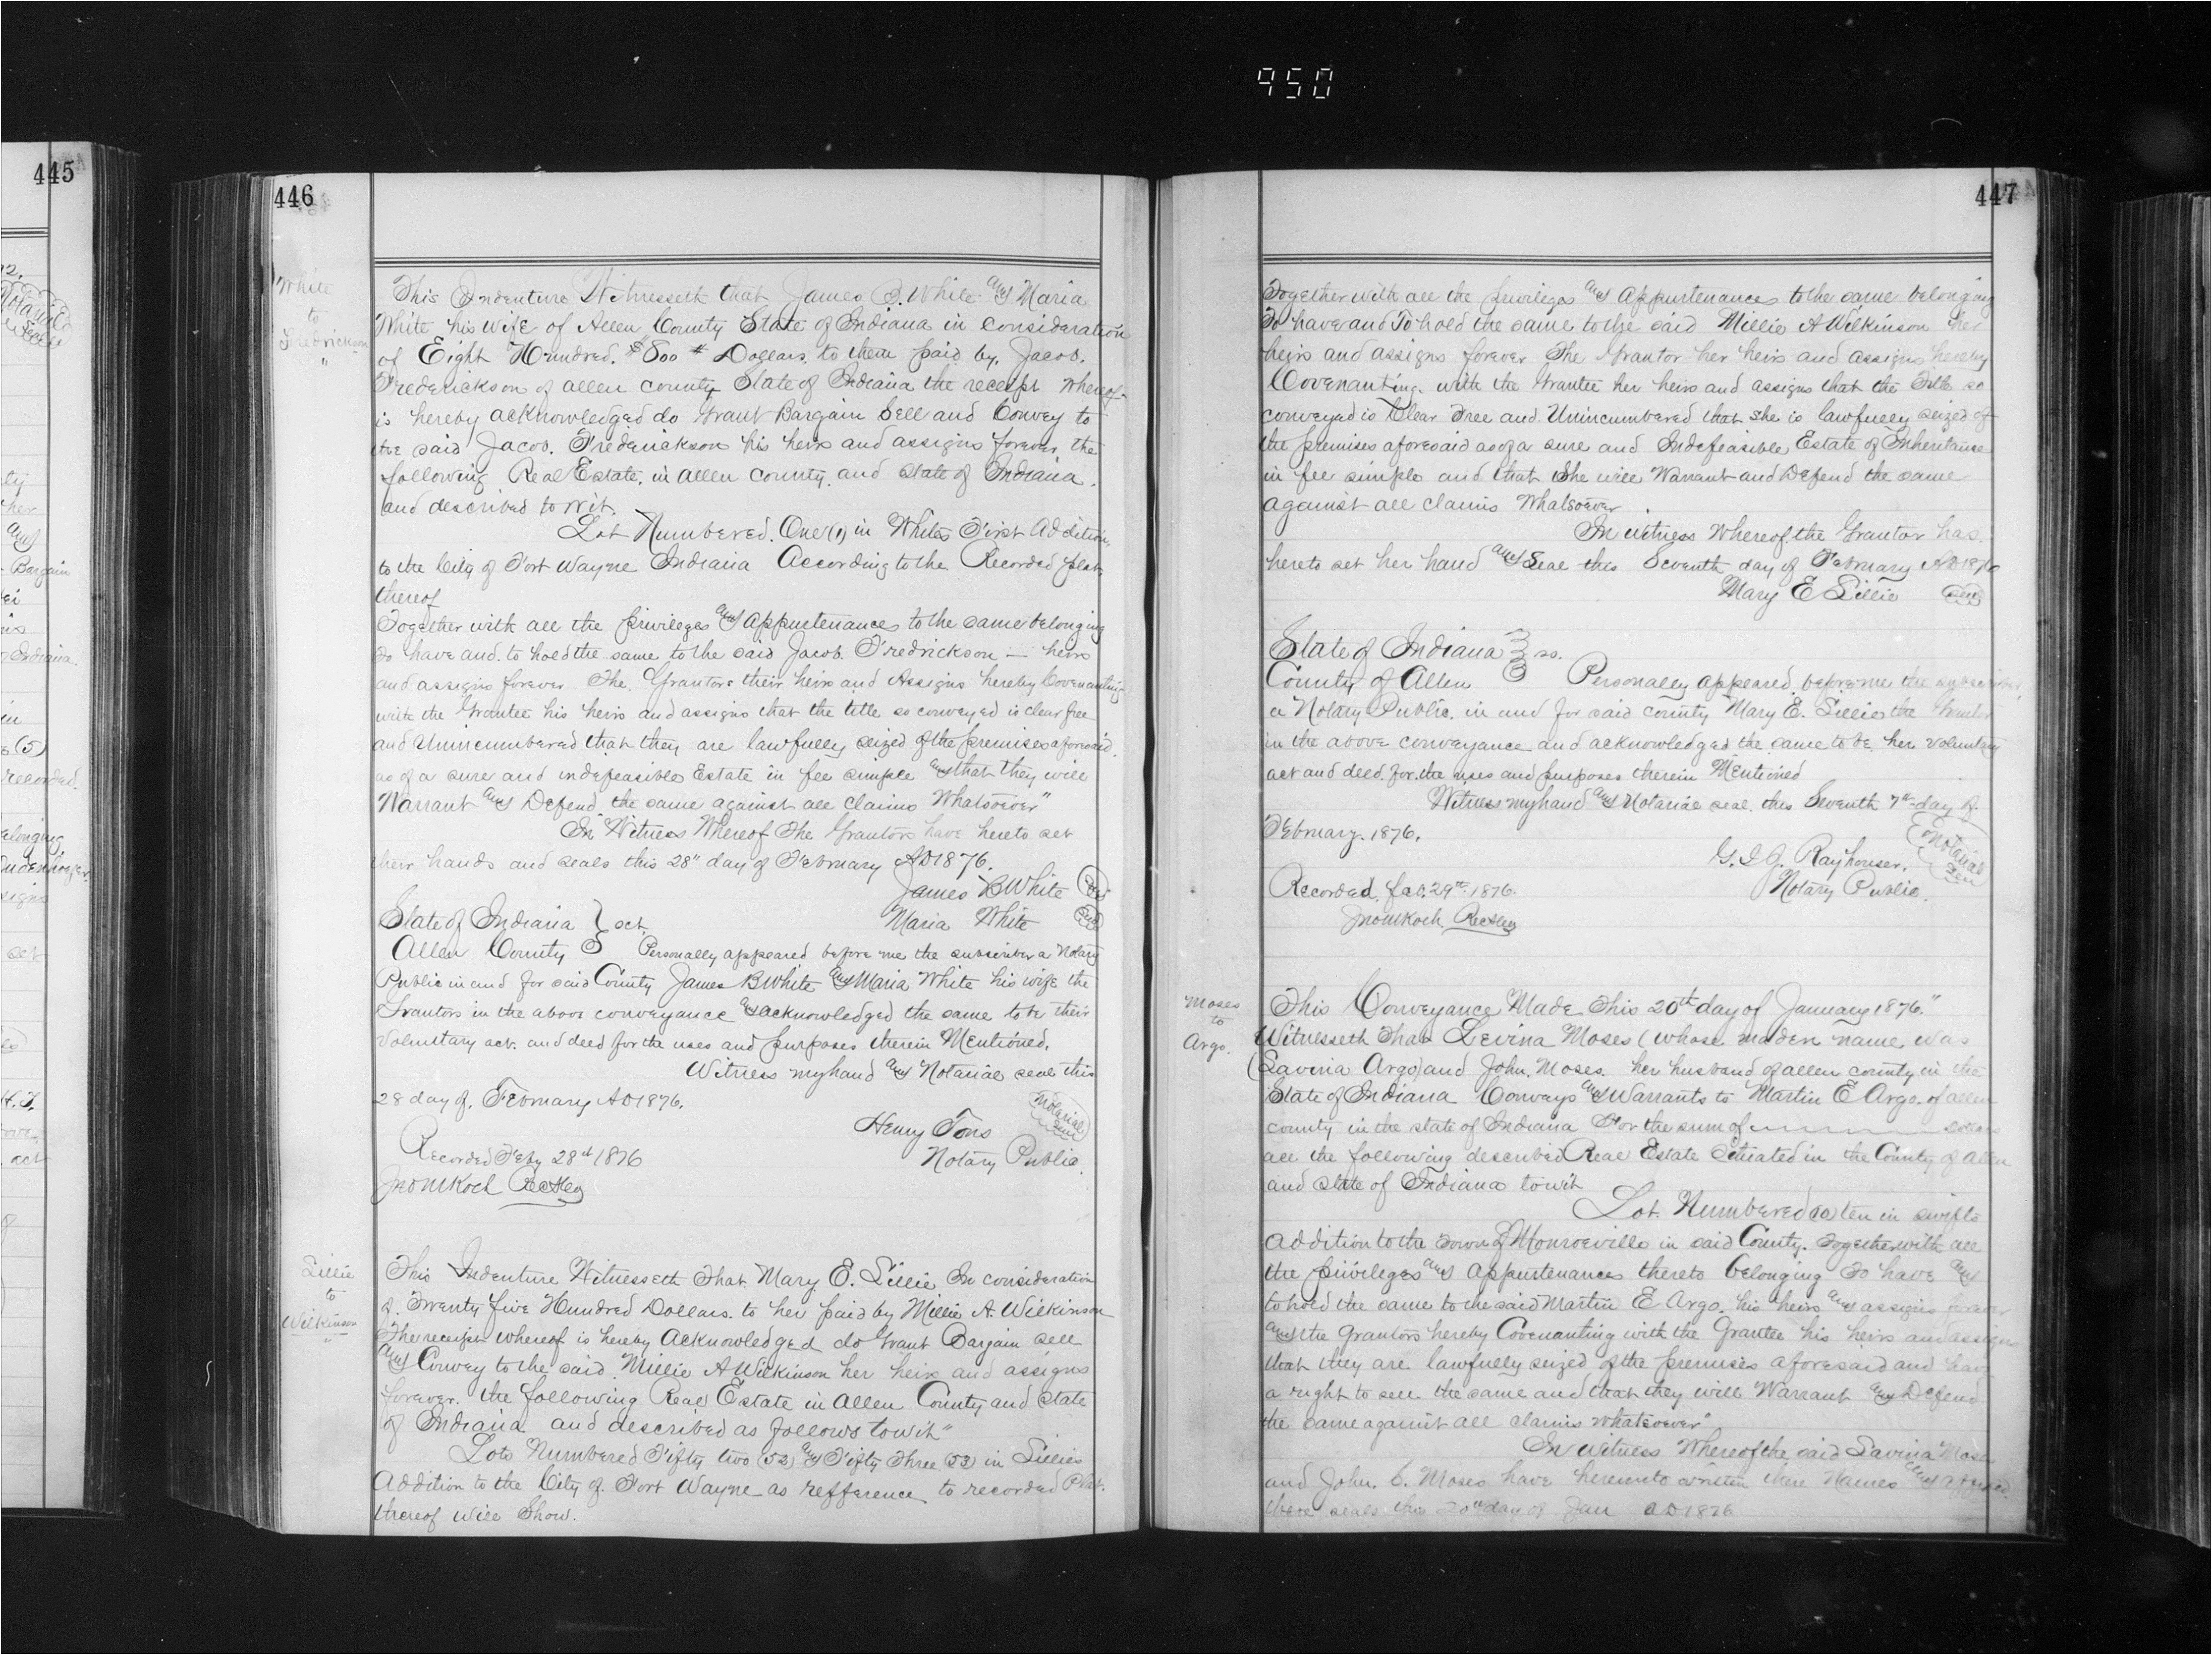 950
445
12.
Notarial
Seal
ty
her
and
Bargain
Indiana.
in
s (5)
recorded.
elonging
signs
set
H. T.
act
of
446
White
to
Fredrickson
"
This Indenture Witnesseth that James B. White and Maria
White his wife of Allen County State of Indiana in consideration
of Eight Hundred. $800 # Dollars to them paid by. Jacob.
Frederickson of allen county State of Indiana the receipt whereof
is hereby acknowledged do Grant Bargain Sell and Convey to
the said Jacob. Frederickson his heirs and assigns forever, the
following Real Estate. in allen county. and State of Indiana.
and described to wit.
Lot Numbered. One (1) in Whites First Addition
to the City of Fort Wayne Indiana According to the Recorded plat
thereof
Together with all the privileges and appurtenances to the same belonging
To have and. to hold the same to the said Jacob. Fredrickson — heirs
and assigns forever The. Grantors their heirs and Assigns hereby Covenanting
with the Grantee his heirs and assigns that the title so conveyed is clear free
and Unincumbered that they are lawfully seized of the premises aforesaid.
as of a sure and indefeasible Estate in fee simple and that they will
Warrant and Defend the same against all claims Whatsoever"
In Witness Whereof The Grantors have hereto set
their hands and seals this 28" day of February AD 1876.
James B White Seal
Maria White Seal
State of Indiana } sct.
Allen County } Personally appeared before me the subscriber a Notary
Public in and for said County James B White and Maria White his wife the
Grantors in the above conveyance and acknowledged the same to be their
voluntary act. and deed for the uses and purposes therein Mentioned.
Witness my hand and Notarial seal this
28 day of. February AD 1876.
Notarial
Seal
Henry Tons
Notary Public.
Recorded Feby 28th 1876
Jno M Koch Rec Aleg
Lillie
to
Wilkinson
"
This Indenture Witnesseth That Mary E. Lillie In consideration
of. Twenty five Hundred Dollars. to her paid by Millie A. Wilkinson
The receipt whereof is hereby Acknowledged do Grant Bargain sell
and Convey to the said Millie A Wilkinson her heirs and assigns
forever. the following Real Estate in Allen County and State
of Indiana and described as follows to wit"
Lots Numbered Fifty two (52) and Fifty Three (53) in Lillies
Addition to the City of. Fort Wayne as refference to recorded Plat.
thereof will Show.
447
Together with all the privileges and Appurtenances to the same belonging
To have and To hold the same to the said Millie A Wilkinson her
heirs and assigns forever The Grantor her heirs and assigns hereby
Covenanting. with the Grantee her heirs and assigns that the Title so
conveyed is Clear Free and Unincumbered that she is lawfully seized of
the premises aforesaid as of a sure and Indefeasible Estate of Inheritance
in fee simple and that She will Warrant and Defend the same
against all claims Whatsoever.
In witness Whereof the Grantor has.
hereto set her hand and Seal this Seventh day of February AD 1876
Mary E Lillie Seal
State of Indiana } ss.
County of Allen } Personally appeared before me the subscriber
a Notary Public. in and for said county Mary E. Lillie the Grantor
in the above conveyance and acknowledged the same to be her voluntary
act and deed. for the uses and purposes therein Mentioned
Witness my hand and Notarial seal. this Seventh 7th day of
February. 1876.
Notarial
Seal
G. I. J. Rayhouser.
Notary Public.
Recorded. feb. 29th 1876.
Jno M Koch Rec Aleg
Moses
to
Argo.
This Conveyance Made This 20th day of January 1876."
Witnesseth That Levina Moses (whose maden name was
(Lavina Argo) and John. Moses. her husband of allen county in the
State of Indiana Conveys and Warrants to Martin E Argo. of allen
county in the state of Indiana For the sum of ———— Dollars
all the following described Real Estate Situated in the County of Allen
and State of Indiana to wit
Lot. Numbered (10) ten in swifts
Addition to the Town of Monroeville in said County. Together with all
the privileges and appurtenances thereto belonging To have and
to hold the same to the said Martin E Argo. his heirs and assigns forever
and the Grantors hereby Covenanting with the Grantee his heirs and assigns
that they are lawfully seized of the premises aforesaid and have
a right to sell the same and that they will Warrant and Defend
the same against all claims whatsoever"
In Witness Whereof the said Lavina Moses
and John. C. Moses have hereunto written there Names and affixed
there seals this 20th day of Jan AD 1876